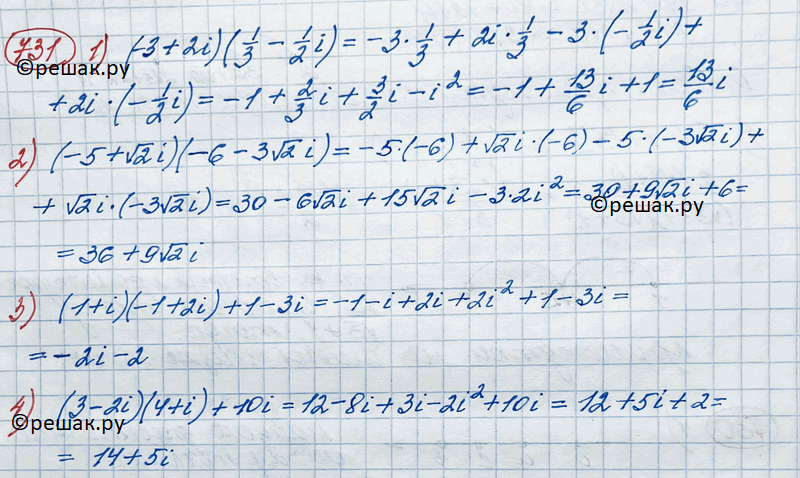 731 1) (-3+2i)(1/3 - 1/2 i) = -3·1/3 + 2i·1/3 - 3·(-1/2 i) +
©решак.ру
+ 2i·(-1/2 i) = -1 + 2/3 i + 3/2 i - i² = -1 + 13/6 i + 1 = 13/6 i
2) (-5+√2i)(-6-3√2i) = -5·(-6) + √2i·(-6) - 5·(-3√2i) +
+ √2i·(-3√2i) = 30 - 6√2i + 15√2i - 3·2i² = 30 + 9√2i + 6 =
©решак.ру
= 36 + 9√2i
3) (1+i)(-1+2i) + 1 - 3i = -1 - i + 2i + 2i² + 1 - 3i =
= -2i - 2
4) (3-2i)(4+i) + 10i = 12 - 8i + 3i - 2i² + 10i = 12 + 5i + 2 =
©решак.ру
= 14 + 5i